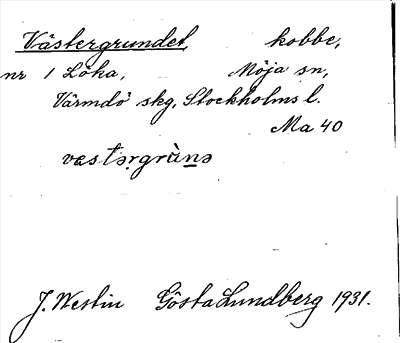 Västergrundet, kobbe,
nr 1 Löka, Möja sn,
Värmdö skg, Stockholms l.
Ma 40
væstərgrùnə
J. Westin Gösta Lundberg 1931.